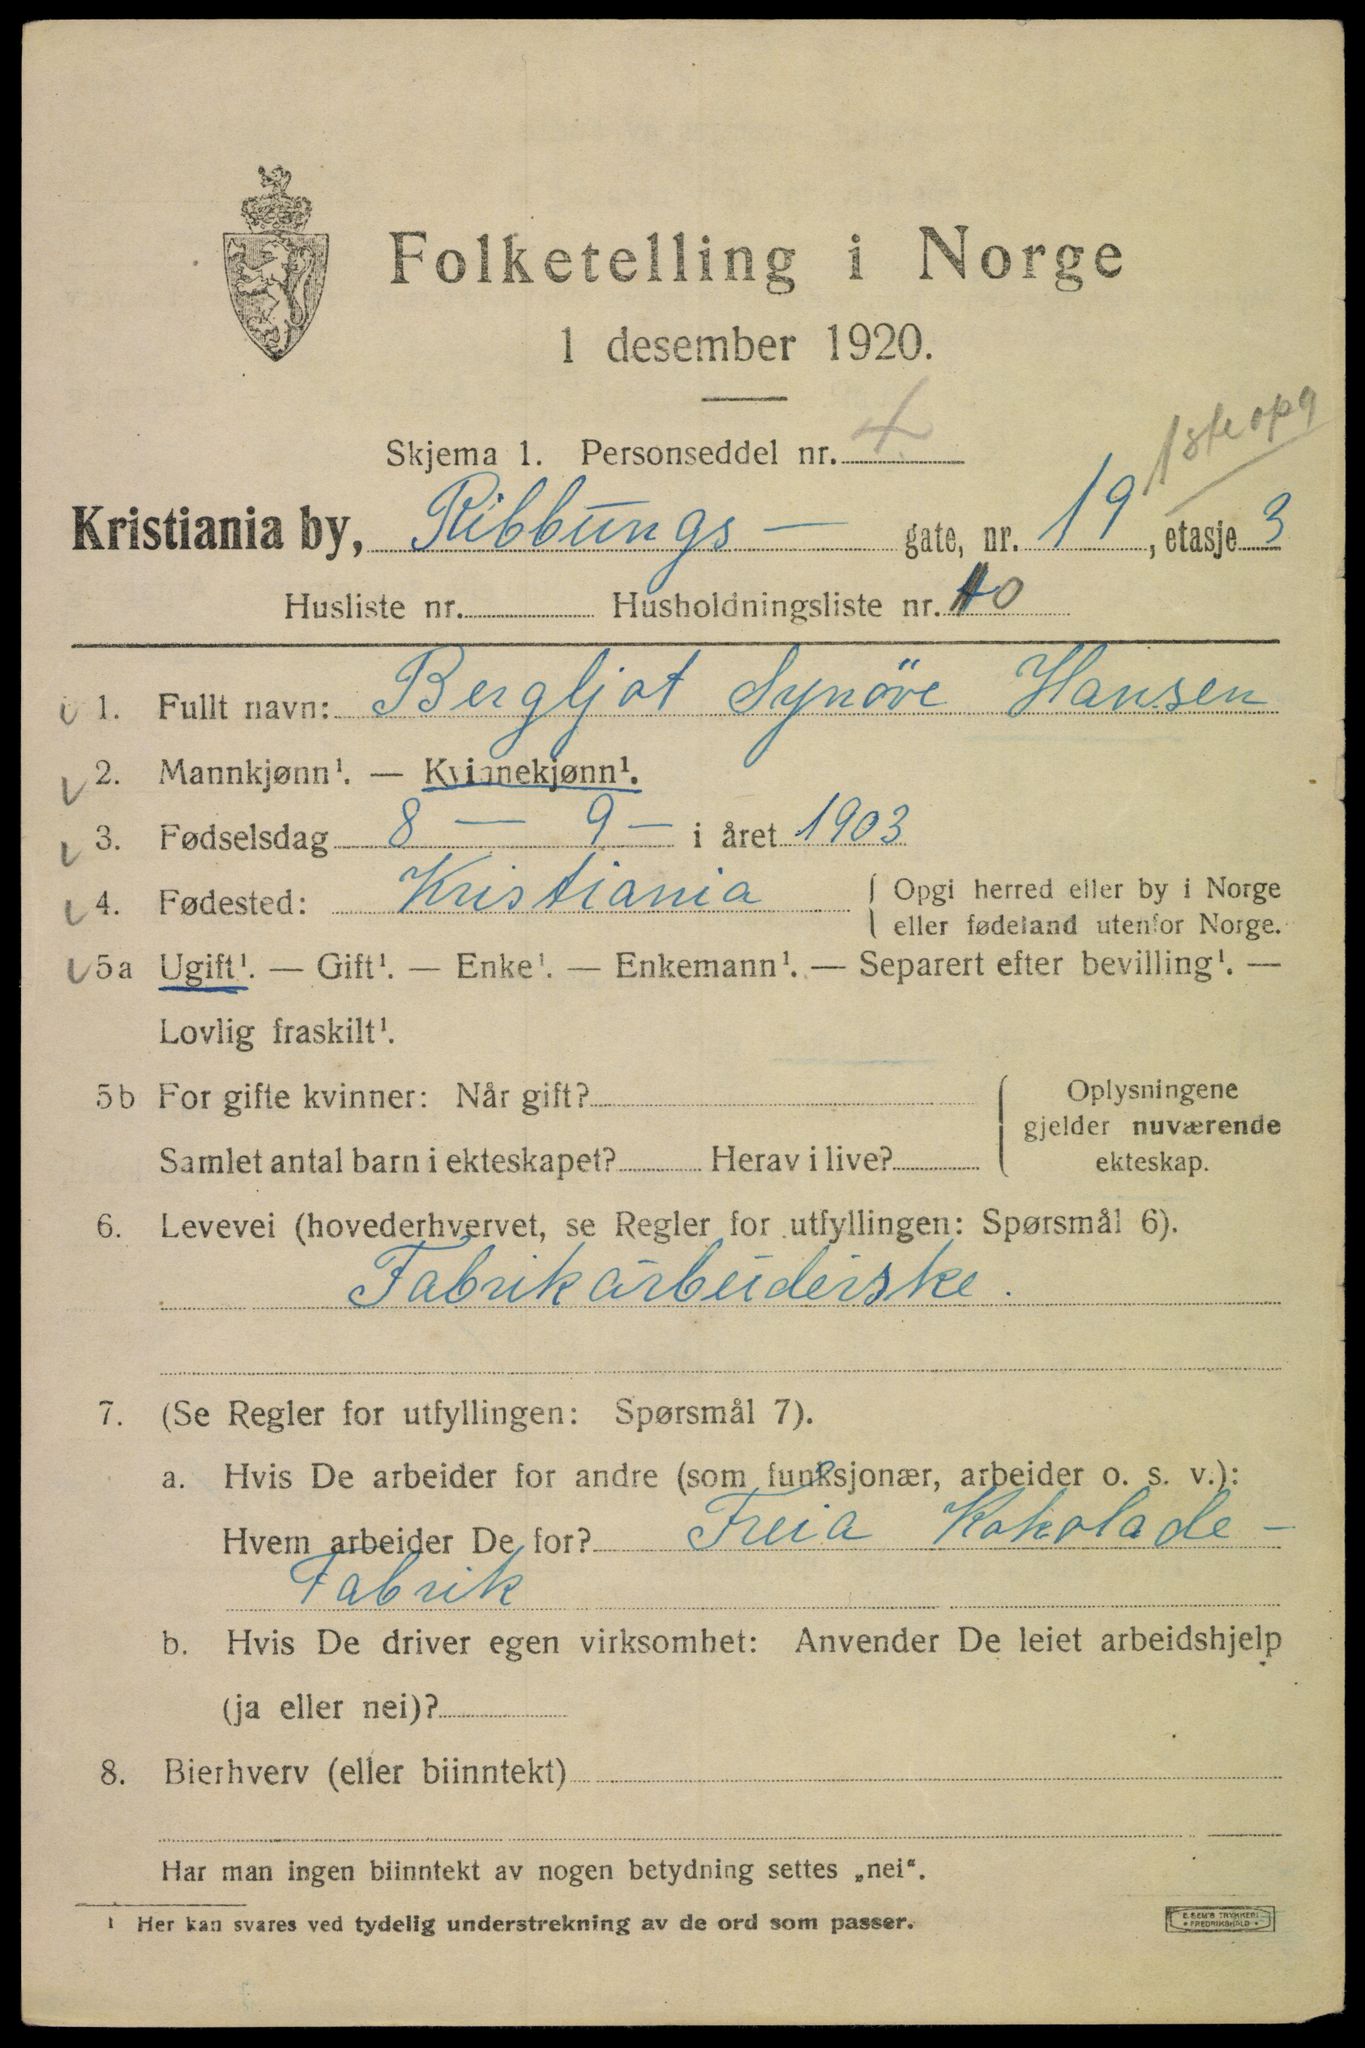 Folketelling i Norge
1 desember 1920.
Skjema 1. Personseddel nr. 4
1ste opg
Kristiania by, Ribbungs — gate, nr. 19, etasje 3
Husliste nr. Husholdningsliste nr. 10
1. Fullt navn: Bergljot Synöve Hansen
2. Mannkjønn¹. — Kvinnekjønn¹.
3. Fødselsdag 8 — 9 — i året 1903
4. Fødested: Kristiania { Opgi herred eller by i Norge
eller fødeland utenfor Norge.
5a Ugift¹. — Gift¹. — Enke¹. — Enkemann¹. — Separert efter bevilling¹. —
Lovlig fraskilt¹.
5b For gifte kvinner: Når gift?
Samlet antal barn i ekteskapet? Herav i live?
Oplysningene
gjelder nuværende
ekteskap.
6. Levevei (hovederhvervet, se Regler for utfyllingen: Spørsmål 6).
Fabrikarbeiderske.
7. (Se Regler for utfyllingen: Spørsmål 7).
a. Hvis De arbeider for andre (som funksjonær, arbeider o. s. v.):
Hvem arbeider De for? Freia Kokolade-
Fabrik
b. Hvis De driver egen virksomhet: Anvender De leiet arbeidshjelp
(ja eller nei)?
8. Bierhverv (eller biinntekt)
Har man ingen biinntekt av nogen betydning settes „nei“.
¹ Her kan svares ved tydelig understrekning av de ord som passer.
E. SEM'S TRYKKERI
FREDRIKSHALD